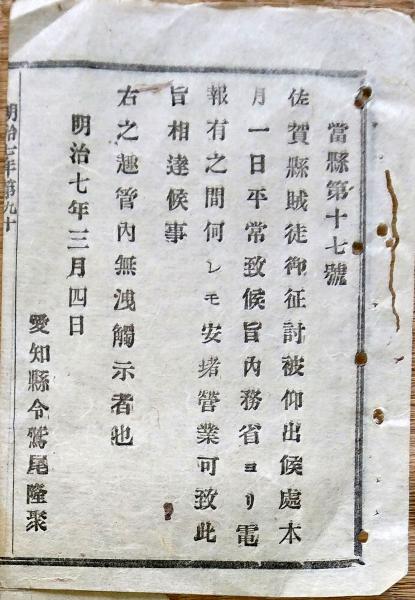 當縣第十七號
佐賀縣賊徒御征討被仰出候處本
月一日平常致候旨內務省ヨリ電
報有之間何レモ安堵營業可致此
旨相達候事
右之趣管內無洩觸示者也
明治七年三月四日
愛知縣令鷲尾隆聚
明治七年第九十